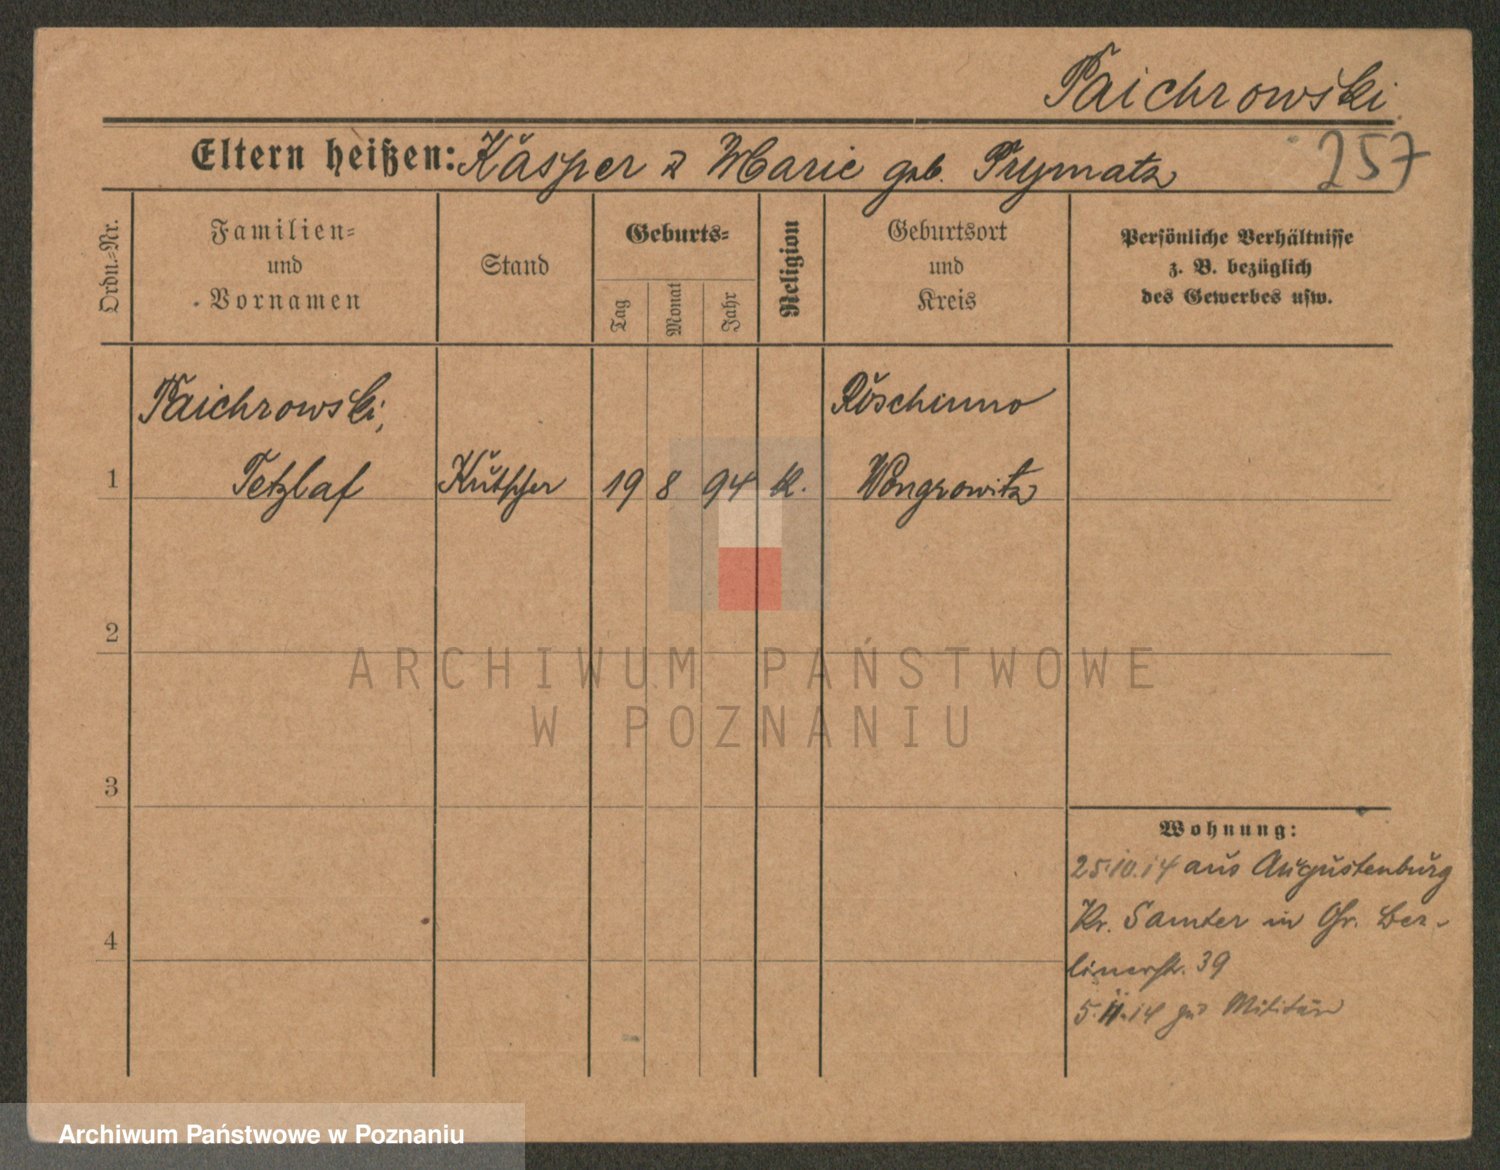 Paichrowski
Eltern heißen: Kasper u Marie geb. Prymatz
257
Ordn.-Nr.
Familien-
und
Vornamen
Stand
Geburts-
Tag
Monat
Jahr
Religion
Geburtsort
und
Kreis
Persönliche Verhältnisse
z. B. bezüglich
des Gewerbes usw.
Paichrowski,
Roschinno
1 Tetzlaf Kutscher 19 8 94 k. Wongrowitz
2
3
4
Wohnung:
25.10.14 aus Augustenburg
Kr. Samter in Gr. Ber-
linerstr. 39
5.11.14 zum Militär
ARCHIWUM PAŃSTWOWE
W POZNANIU
Archiwum Państwowe w Poznaniu